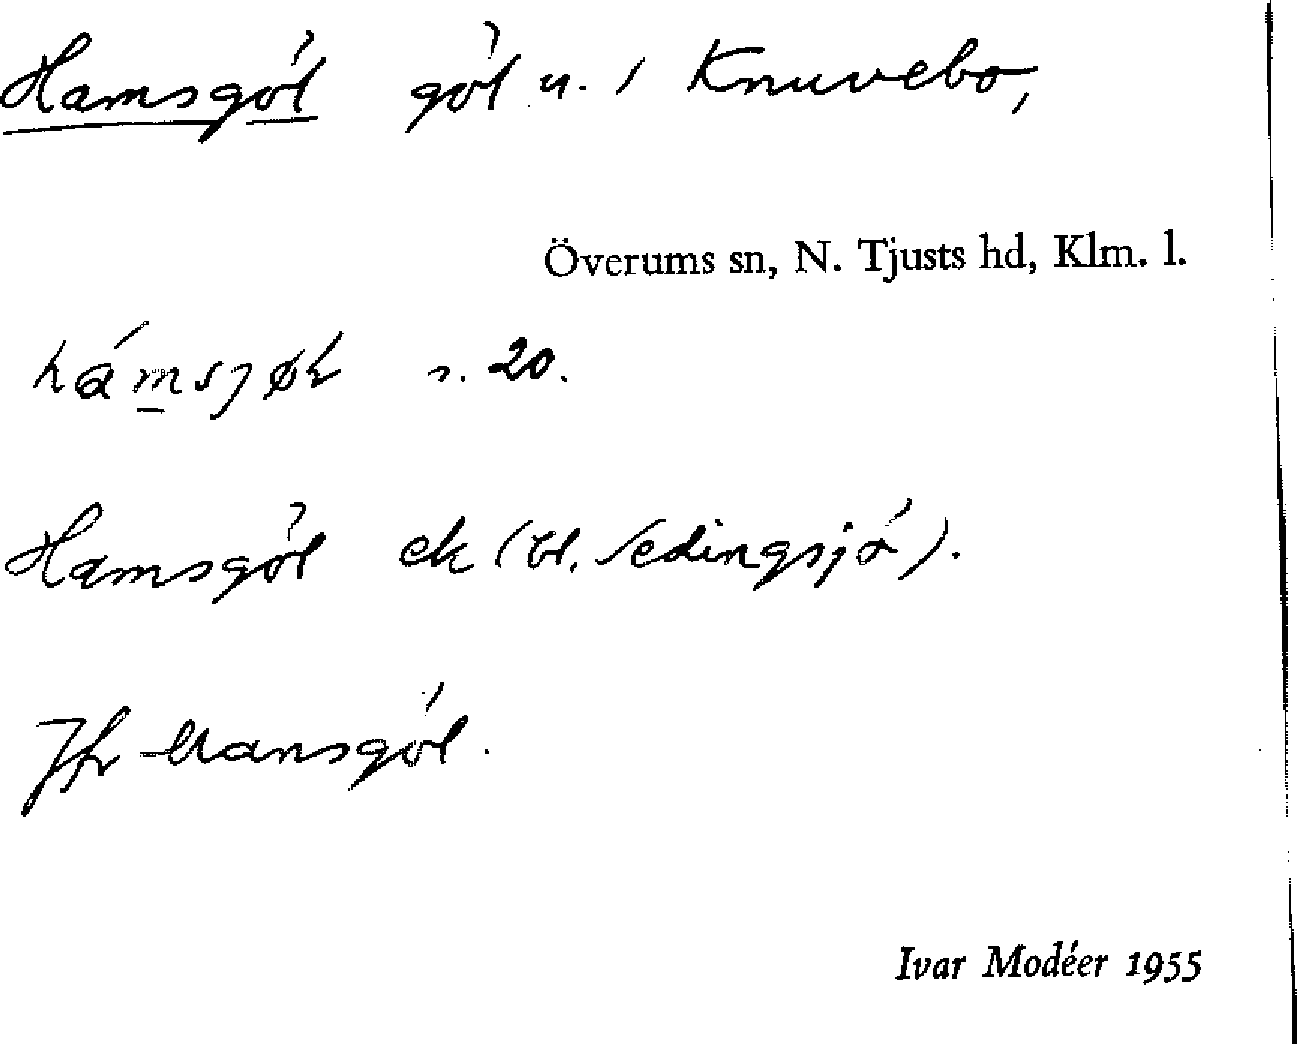 Hamsgöl göl u. / Knuvebo,
Överums sn, N. Tjusts hd, Klm. l.
s. 20.
Hamsgöl ek (bl. Vedingsjö).
Jfr Mansgöl.
Ivar Modéer 1955